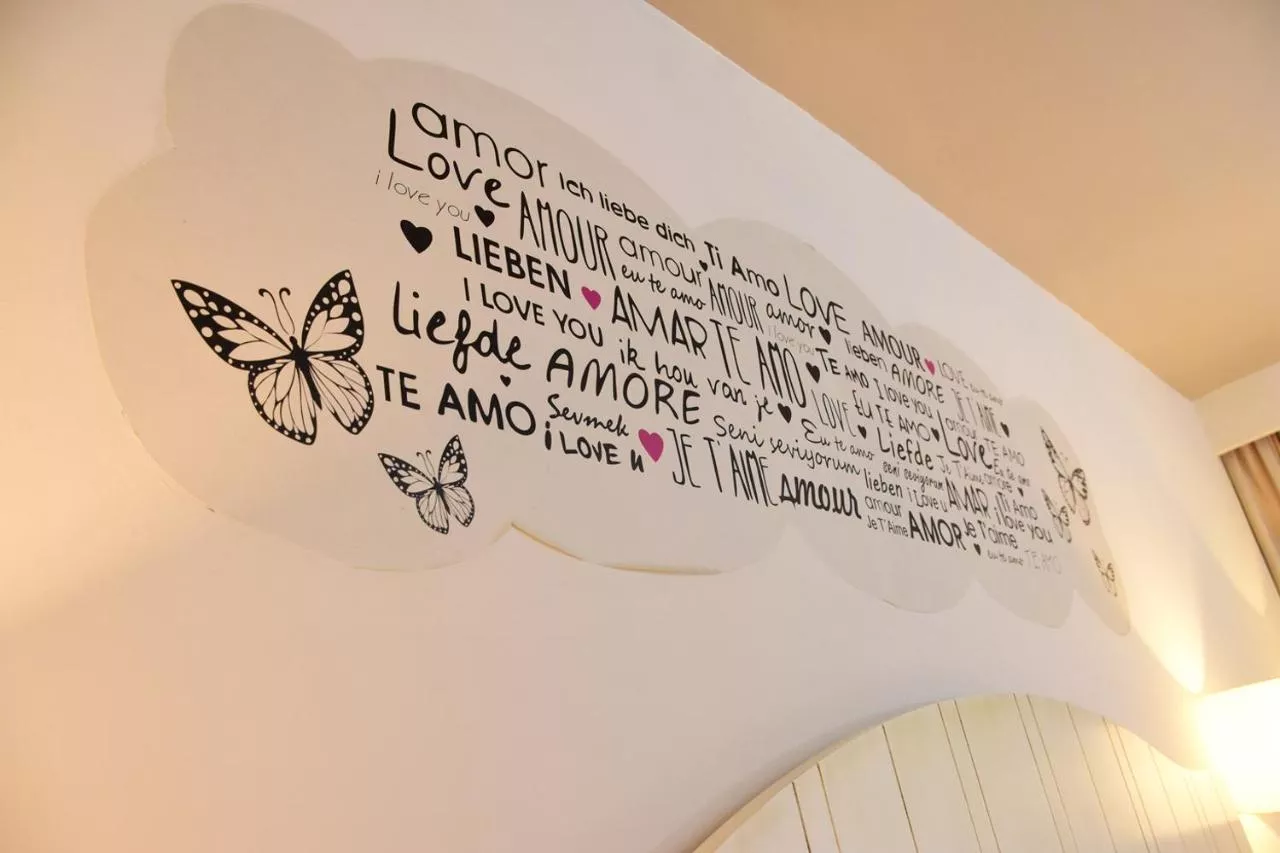 amor Ich liebe dich Ti Amo LOVE AMOUR LOVE
Love AMOUR amour AMOUR amor lieben AMORE JE T'AIME
i love you eu te amo i love you TE AMO I love you amour TE AMO
LIEBEN AMAR TE AMO LOVE EU TE AMO Love Eu te amo
I LOVE YOU ik hou van je Eu te amo Liefde Je T'Aime amore
Liefde AMORE Seni seviyorum seni seviyorum AMAR Ti Amo
TE AMO Sevmek JE T'AIME lieben i Love u i love you
i LOVE u amour amour Je T'aime
Je T'Aime AMOR eu te amo TE AMO